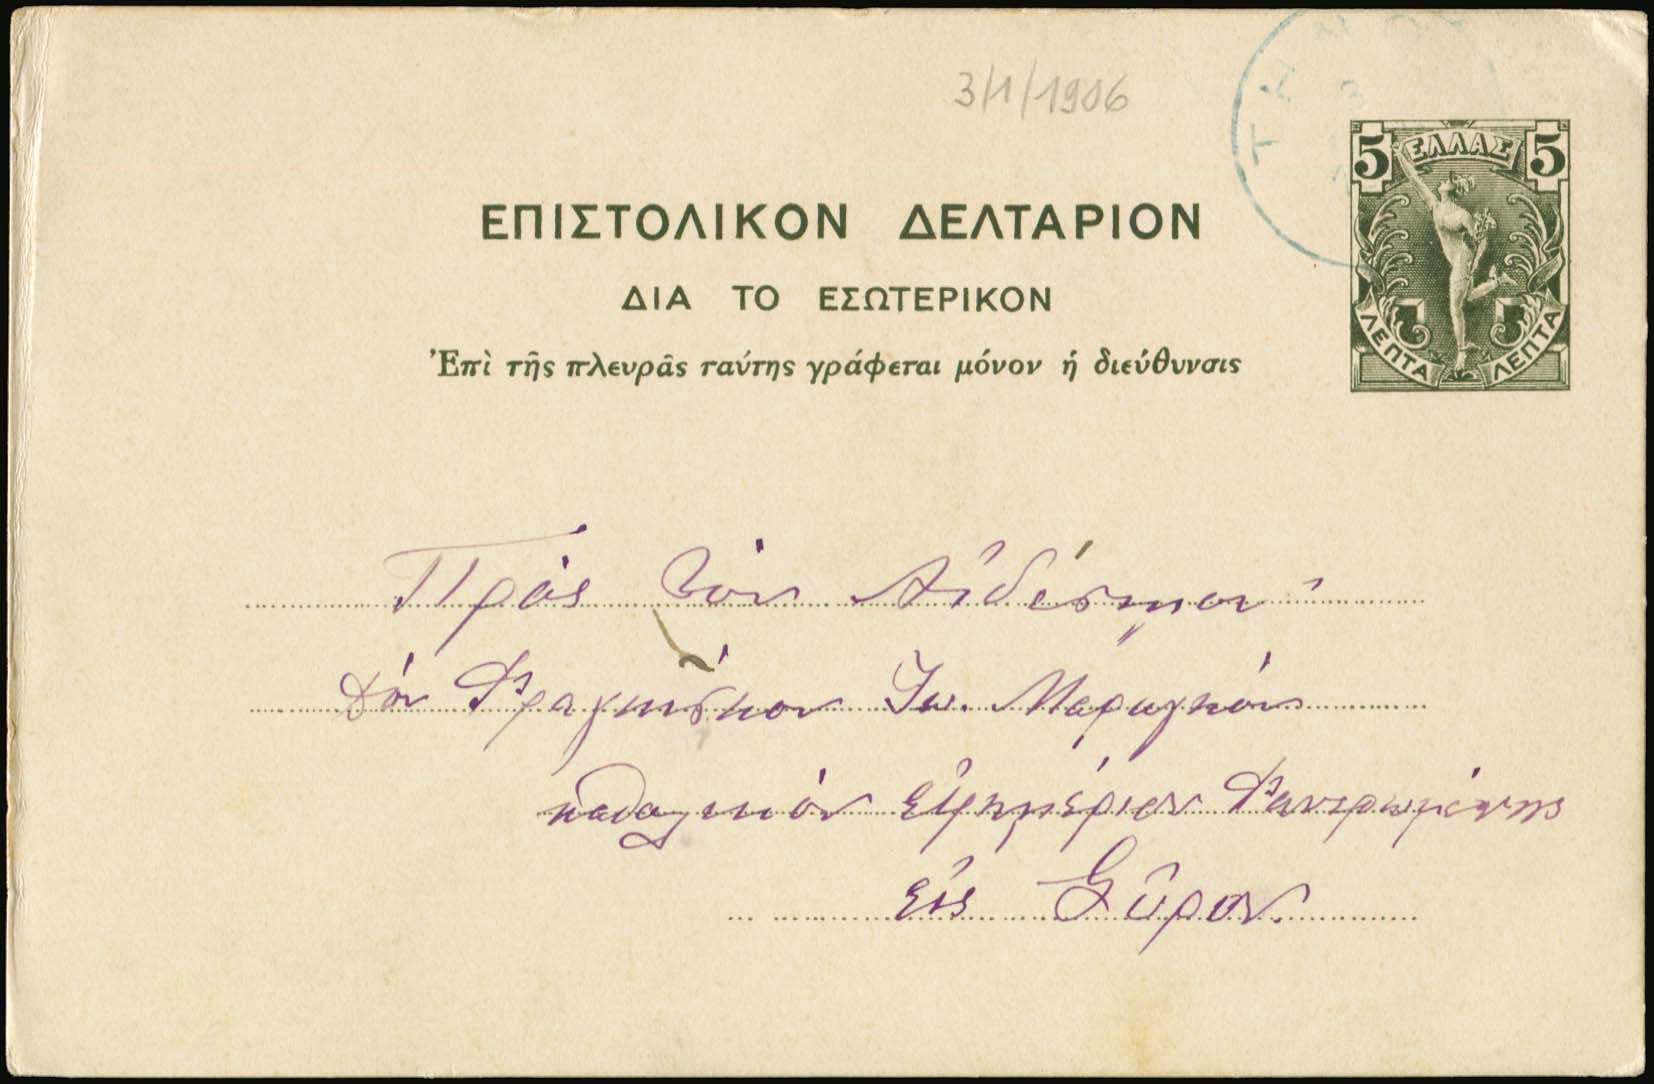 3/1/1906
ΤΗΝΟΣ
3
5 ΕΛΛΑΣ 5
ΛΕΠΤΑ ΛΕΠΤΑ
ΕΠΙΣΤΟΛΙΚΟΝ ΔΕΛΤΑΡΙΟΝ
ΔΙΑ ΤΟ ΕΣΩΤΕΡΙΚΟΝ
Ἐπὶ τῆς πλευρᾶς ταύτης γράφεται μόνον ἡ διεύθυνσις
Πρὸς τὸν Αἰδέσιμον
Δὸν Φραγκίσκον Ἰω. Μαραγκόν
καθολικὸν ἐφημέριον Φανερωμένης
εἰς Σῦρον.